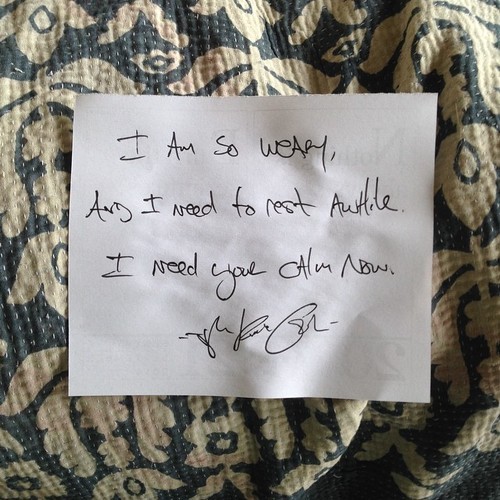 I Am So WEARY,
AND I need to rest AwHile.
I need your CAlm Now.